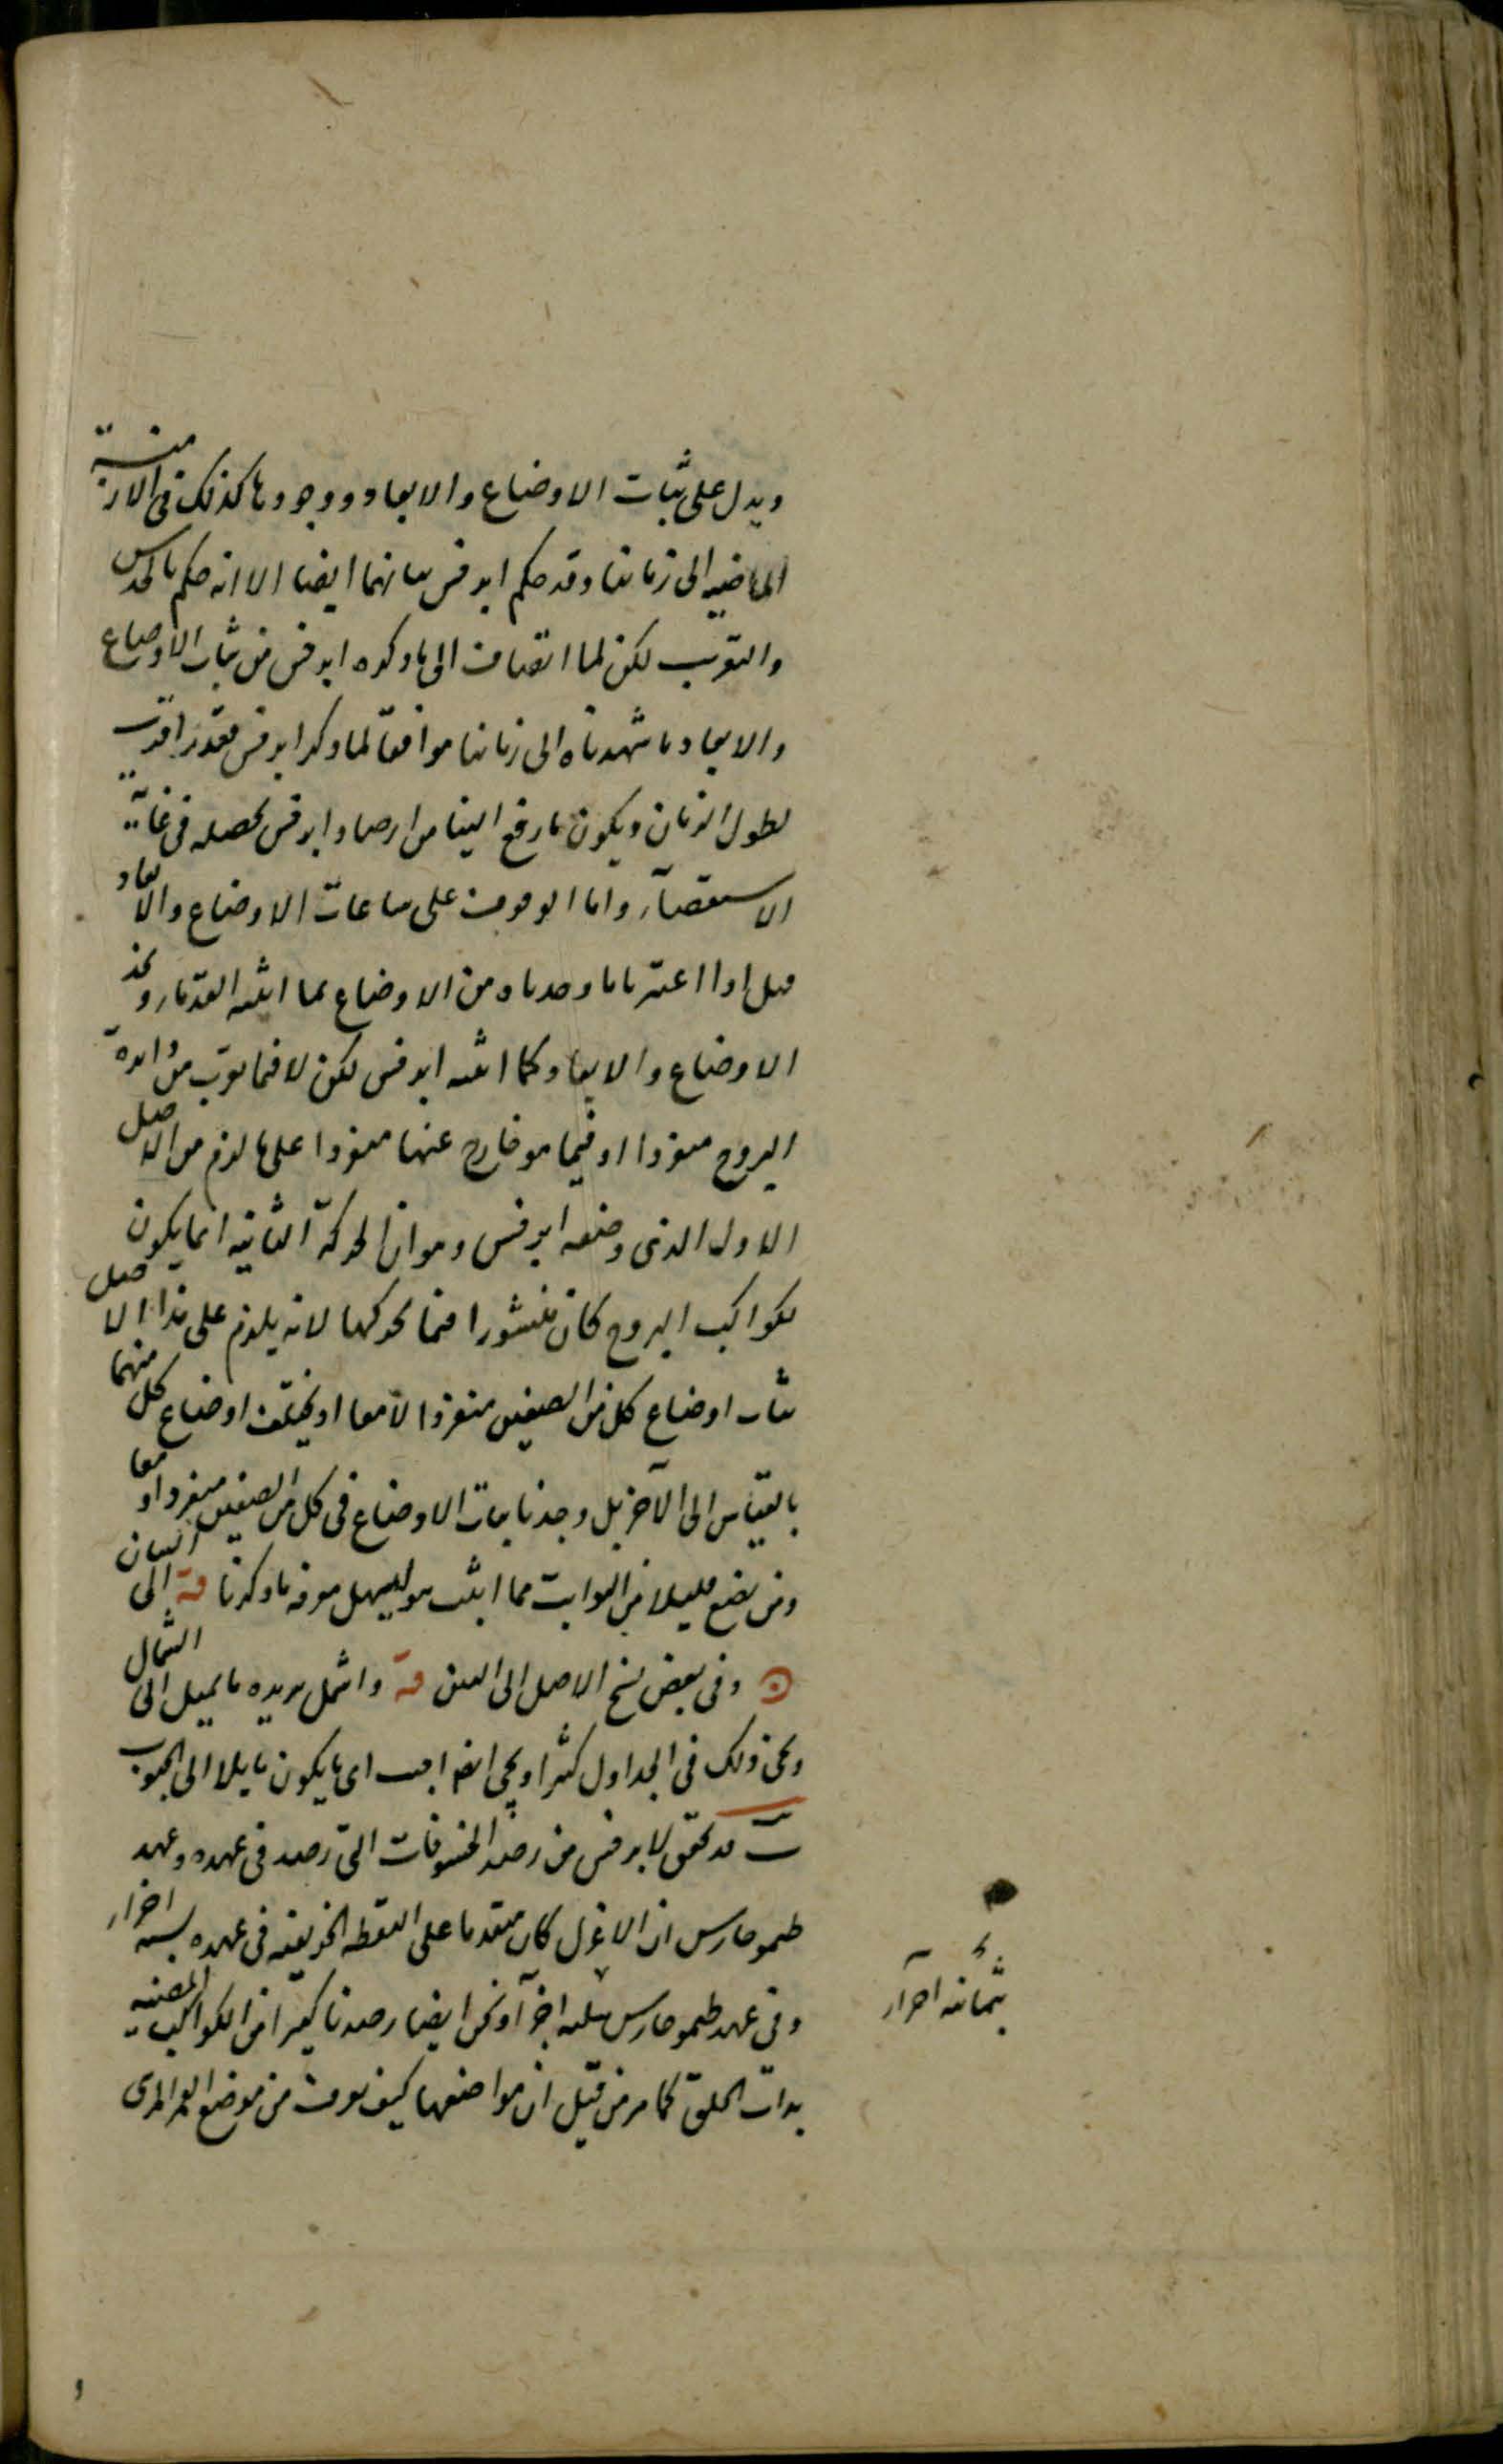 ويدل على ثبات الاوضاع والابعاد ووجودها كذلك فى الازمنة
الماضيه الى زماننا وقد حكم ابرخس بثباتهما ايضا الا انه حكم بالحدس
والتقريب لكن لما انضاف الى ما ذكره ابرخس من ثبات الاوضاع
والابعاد ما شهدناه الى زماننا موافقا لما ذكر ابرخس فقد
لطول الزمان ويكون ما رفع الينا من ارصاد ابرخس محصله فى غاية
الاستقصآء واما الوقوف على ثبات الاوضاع والابعاد
اذا اعتبرنا ما وجدناه من الاوضاع بما اثبته القدمآء ونجد
الاوضاع والابعاد كما اثبته ابرخس لكن لا فيما يقرب من دايرة
البروج مفردا او فيما هو خارج عنها مفردا على ما لزم من الاصل
الاول الذى وضعه ابرخس وهو ان الحركة الثانيه انما يكون
لكواكب البروج كان منشورا فيما لانه يلزم على هذا الاصل
ثبات اوضاع كل من الصنفين منفردا لا معا او يختلف اوضاع كل منهما
بالقياس الى الآخر بل وجدنا ثبات الاوضاع فى كل من الصنفين منفردا ومعا
ومن يضع قليلا من الثوابت مما اثبت ليسهل معرفة ما ذكرنا قة الى اللسان
وفى بعض نسخ الاصل الى العين قة واشمل يريده ما يميل الى الشمال
ويجئ ذلك فى الجداول كثيرا ويجئ ايضا اجنب اى ما يكون مايلا الى الجنوب
قد تحقق لابرخس من رصد الخسوفات التى رصد فى عهده وعهد
طيموخارس ان الاعزل كان متقدما على النقطه الخريفيه فى عهده بستة اجزاء
وفى عهد طيموخارس بثمانيه اجزآء ونحن ايضا رصدنا كثيرا من الكواكب المضيئه
بذات الحلق كما مر من قبل ان مواضعها كيف يعرف من موضع القمر المرئى
بثمانيه اجزآء